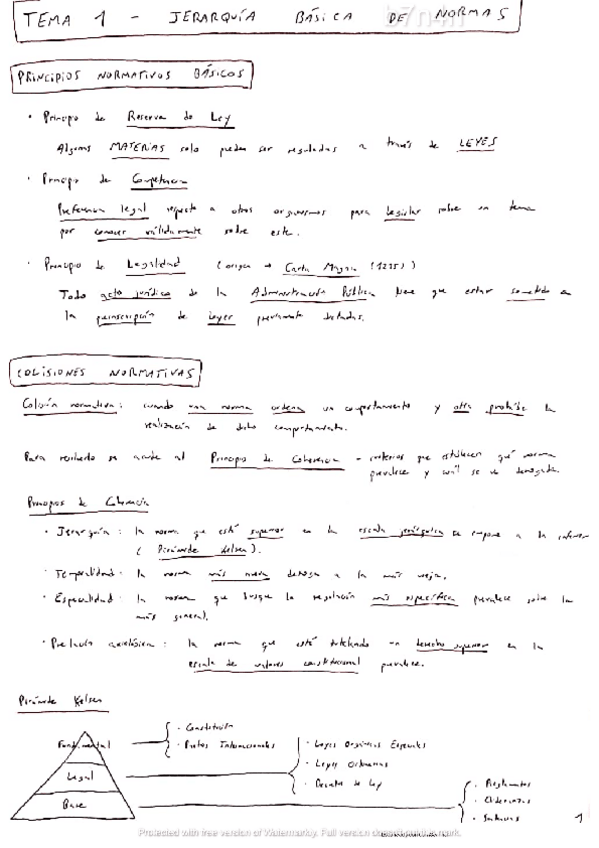 TEMA 1 - JERARQUÍA BÁSICA DE NORMAS
PRINCIPIOS NORMATIVOS BÁSICOS
· Principio de Reserva de Ley
Algunas MATERIAS solo pueden ser reguladas a través de LEYES
· Principio de Competencia
Preferencia legal respecto a otros organismos para legislar sobre un tema
por conocer válidamente sobre este.
· Principio de Legalidad (origen → Carta Magna (1215))
Todo acto jurídico de la Administración Pública tiene que estar sometido a
la prescripción de leyes previamente dictadas.
COLISIONES NORMATIVAS
Colisión normativa: cuando una norma ordena un comportamiento y otra prohíbe la
realización de dicho comportamiento.
Para resolverlo se acude al Principio de Coherencia - criterios que establecen qué norma
prevalece y cuál se ve derogada.
Principios de Coherencia
· Jerarquía: la norma que esté superior en la escala jerárquica se impone a la inferior
(Pirámide Kelsen).
· Temporalidad: la norma más nueva deroga a la más vieja.
· Especialidad: la norma que busque la regulación más específica prevalece sobre la
más general.
· Prelación axiológica: la norma que esté tutelando un derecho superior en la
escala de valores constitucional prevalece.
Pirámide Kelsen
Fundamental
· Constitución
· Tratos Internacionales
Legal
· Leyes Orgánicas Especiales
· Leyes Ordinarias
· Decreto de Ley
Base
· Reglamentos
· Ordenanzas
1
Protected with free version of Watermarkly. Full version doesn't put this mark.